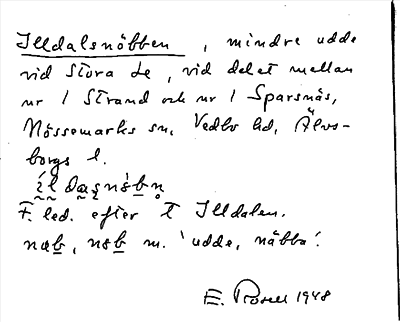 Illdalsnöbben, mindre udde
vid Stora Le, vid delet mellan
nr 1 Strand och nr 1 Sparsnäs,
Nössemarks sn, Vedbo hd, Älvs-
borgs l.
íldasnö̀bn̥
F. led. efter T Illdalen.
næb, nöb m. 'udde, näbba'.
E. Rosell 1948